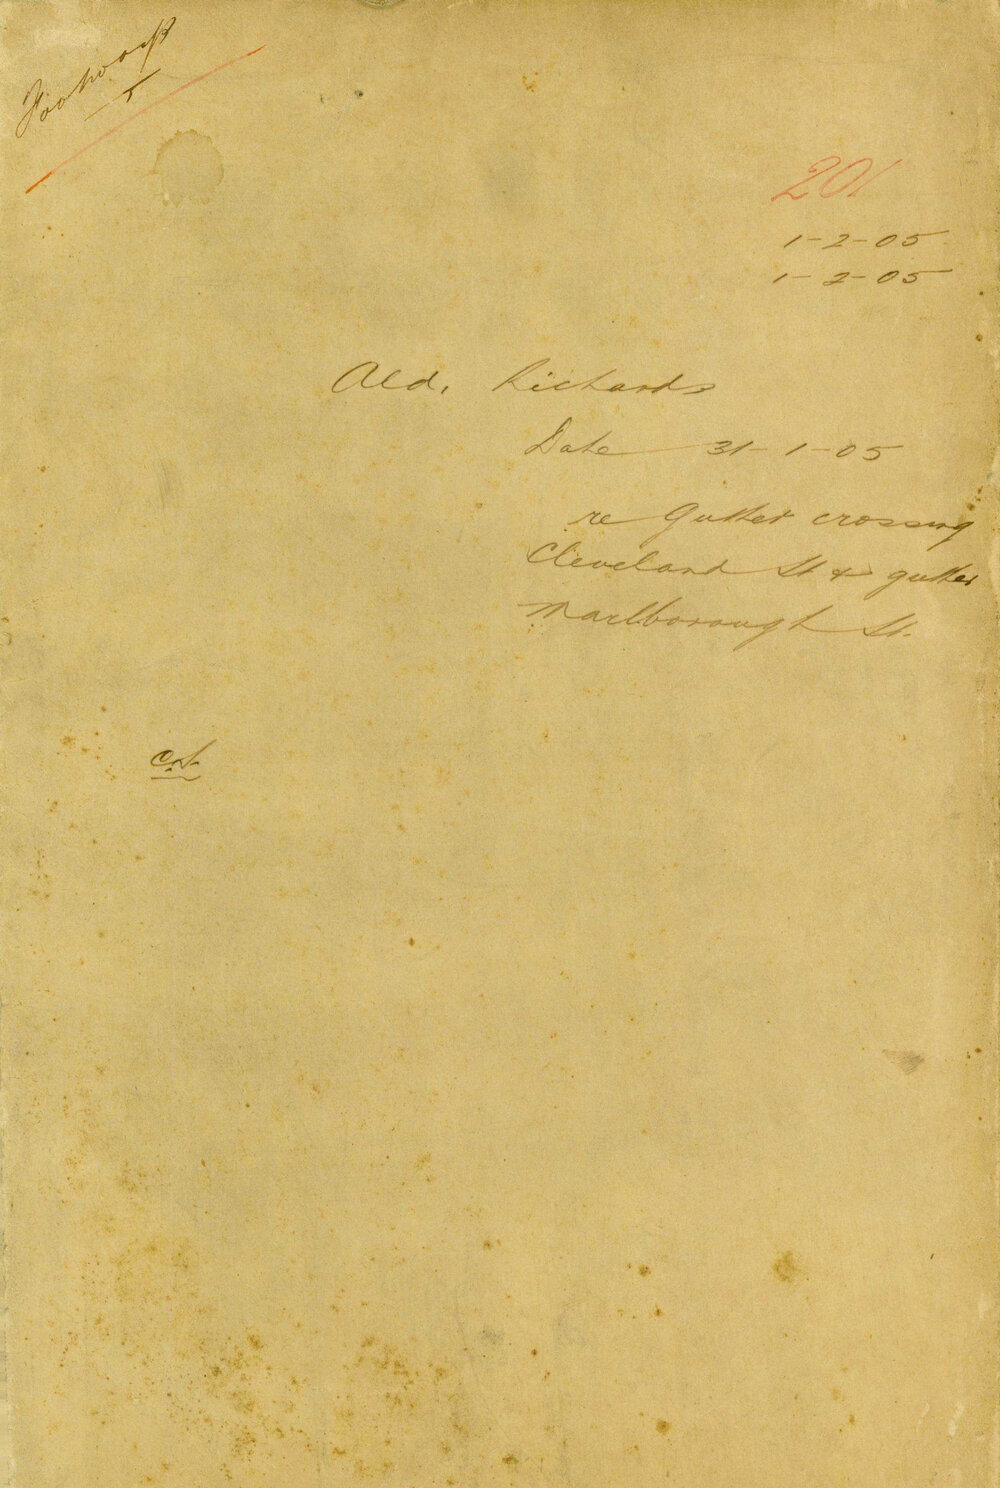 Footways
201
1-2-05
1-2-05
Ald. Richards
Date 31-1-05
re Gutter crossing
Cleveland St & gutter
Marlborough St.